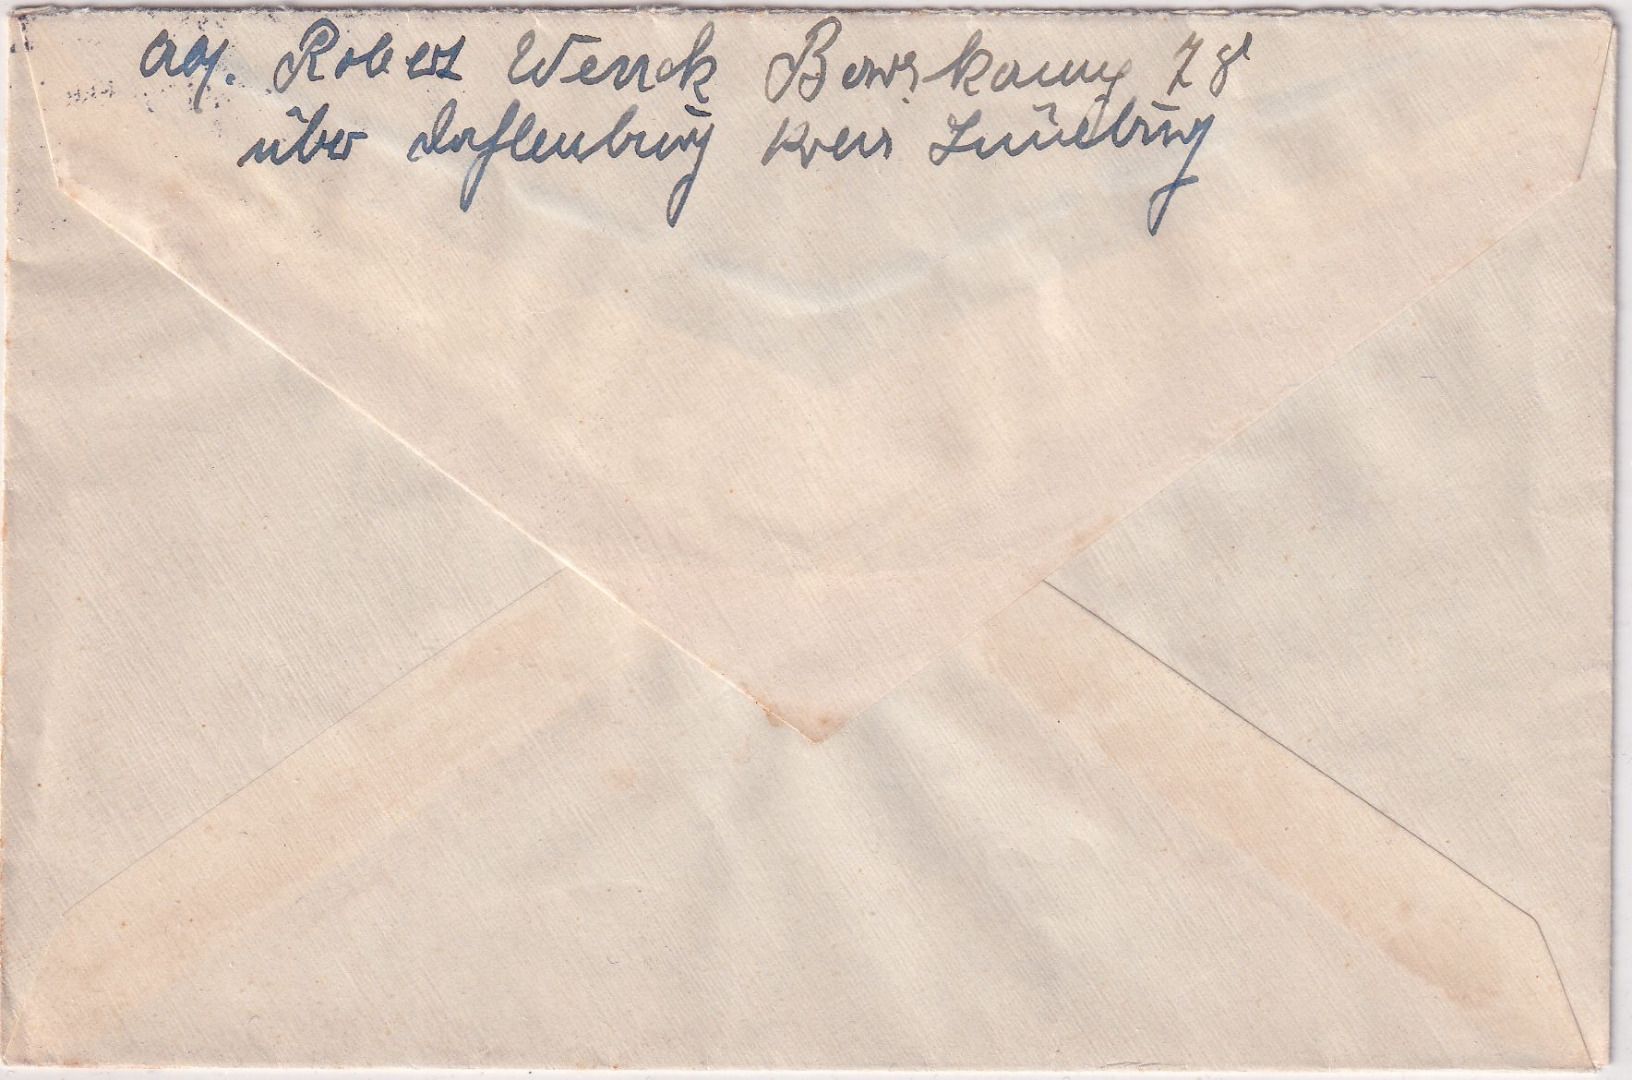 Abs. Robert Wenck Barskamp 78
über Dahlenburg Kreis Lüneburg